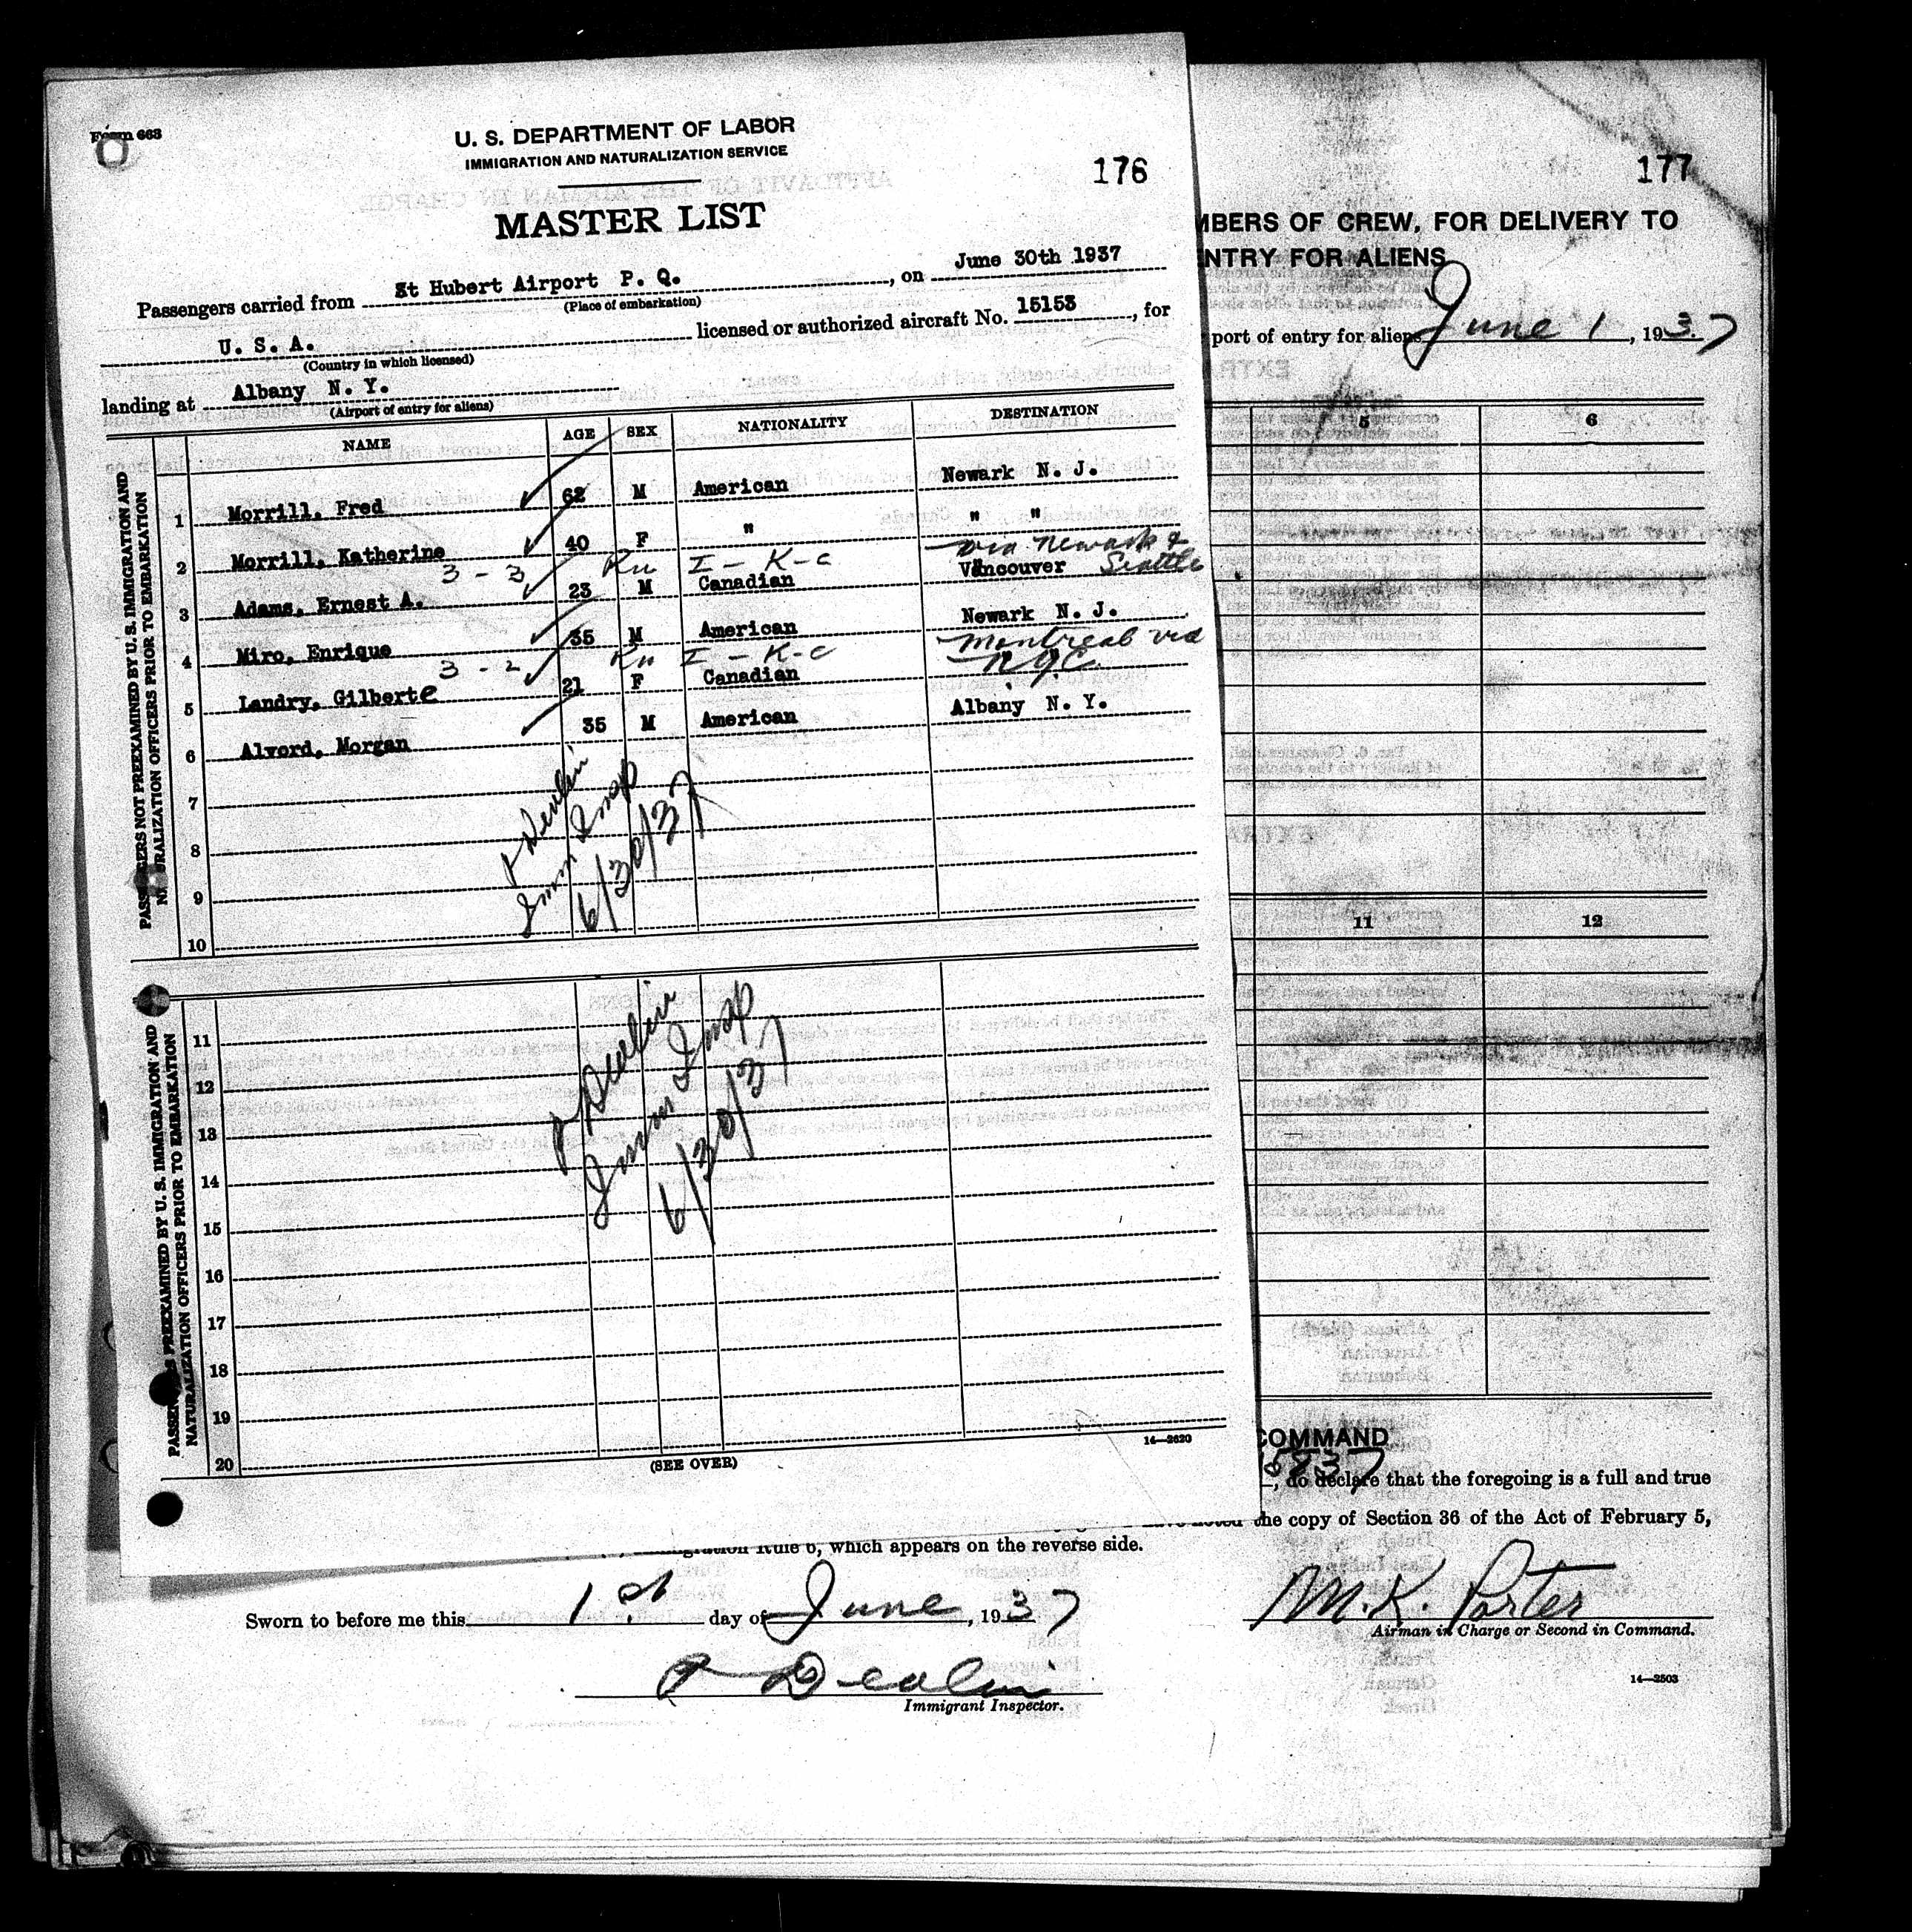 Form 663
U. S. DEPARTMENT OF LABOR
IMMIGRATION AND NATURALIZATION SERVICE
176
MASTER LIST
Passengers carried from St Hubert Airport P. Q., on June 30th 1937
(Place of embarkation)
U. S. A. licensed or authorized aircraft No. 15153, for
(Country in which licensed)
landing at Albany N. Y.
(Airport of entry for aliens)
NAME AGE SEX NATIONALITY DESTINATION
PASSENGERS NOT PREEXAMINED BY U. S. IMMIGRATION AND
NATURALIZATION OFFICERS PRIOR TO EMBARKATION
1 Morrill, Fred 62 M American Newark N. J.
2 Morrill, Katherine 40 F " " "
3 - 3 I - K-C via Newark & Seattle
3 Adams, Ernest A. 23 M Canadian Vancouver
4 Miro, Enrique 35 M American Newark N. J.
3 - 2 I - K-C Montreal via N.Y.C.
5 Landry, Gilberte 21 F Canadian " "
6 Alvord, Morgan 35 M American Albany N. Y.
7
8
9
10
P Devlin
Imm Insp
6/30/37
PASSENGERS PREEXAMINED BY U. S. IMMIGRATION AND
NATURALIZATION OFFICERS PRIOR TO EMBARKATION
11
12
13
14
15
16
17
18
19
20
P Devlin
Imm Insp
6/30/37
14—2620
(SEE OVER)
177
MBERS OF CREW, FOR DELIVERY TO
NTRY FOR ALIENS
port of entry for aliens June 1, 1937
5 6
11 12
COMMAND
, do declare that the foregoing is a full and true
the copy of Section 36 of the Act of February 5,
Rule 6, which appears on the reverse side.
Sworn to before me this 1st day of June, 1937
M. K. Porter
Airman in Charge or Second in Command.
P Devlin
Immigrant Inspector.
14—2503